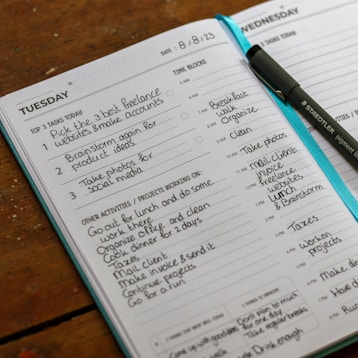 TUESDAY
DATE: 8/8/23
TOP 3 TASKS TODAY
1 Pick the 3 best freelance
websites & make accounts
2 Brainstorm again for
product ideas
3 Take photos for
social media
OTHER ACTIVITIES / PROJECTS WORKING ON:
Go out for lunch and do some
work there
Organize office and clean
Cook dinner for 2 days
Taxes
Mail client
Make invoice & send it
Continue projects
Go for a run
TIME BLOCKS
Breakfast
walk
Organize
clean
Take photos
Mail client
invoice
freelance
websites
lunch
& Brainstorm
Taxes
Work on
projects
Make din
Have
Go for
3 THINGS THAT WENT WELL TODAY
3 THINGS TO IMPROVE
Don't plan to much
for one day
Take regular breaks
Drink enough
WEDNESDAY
TOP 3 TASKS TODAY
1
2
3
OTHER ACTIVITIES
STAEDTLER
pigment